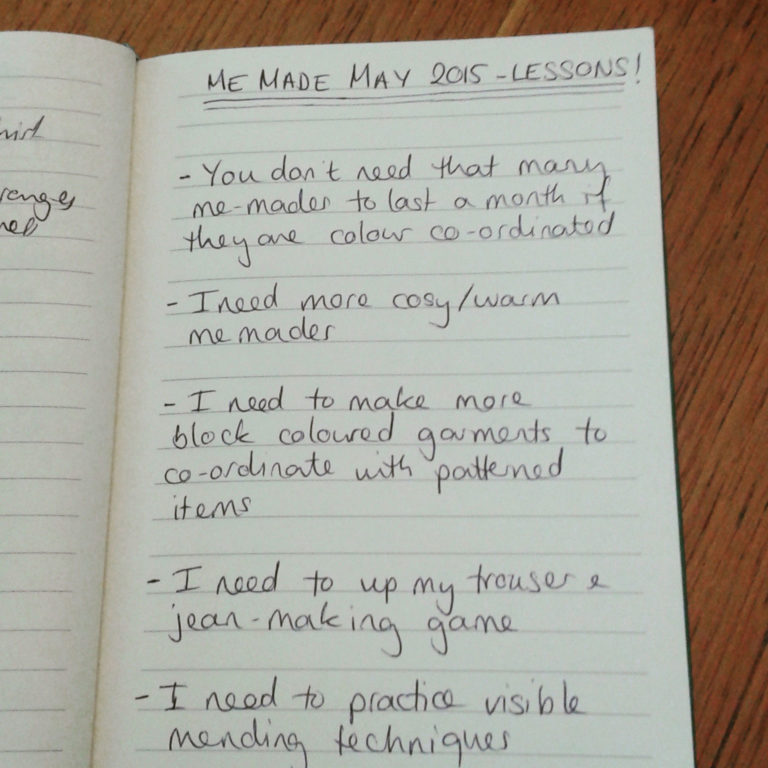 ME MADE MAY 2015 - LESSONS!
- You don't need that many
me-mades to last a month if
they are colour co-ordinated
- I need more cosy/warm
me mades
- I need to make more
block coloured garments to
co-ordinate with patterned
items
- I need to up my trouser &
jean-making game
- I need to practice visible
mending techniques